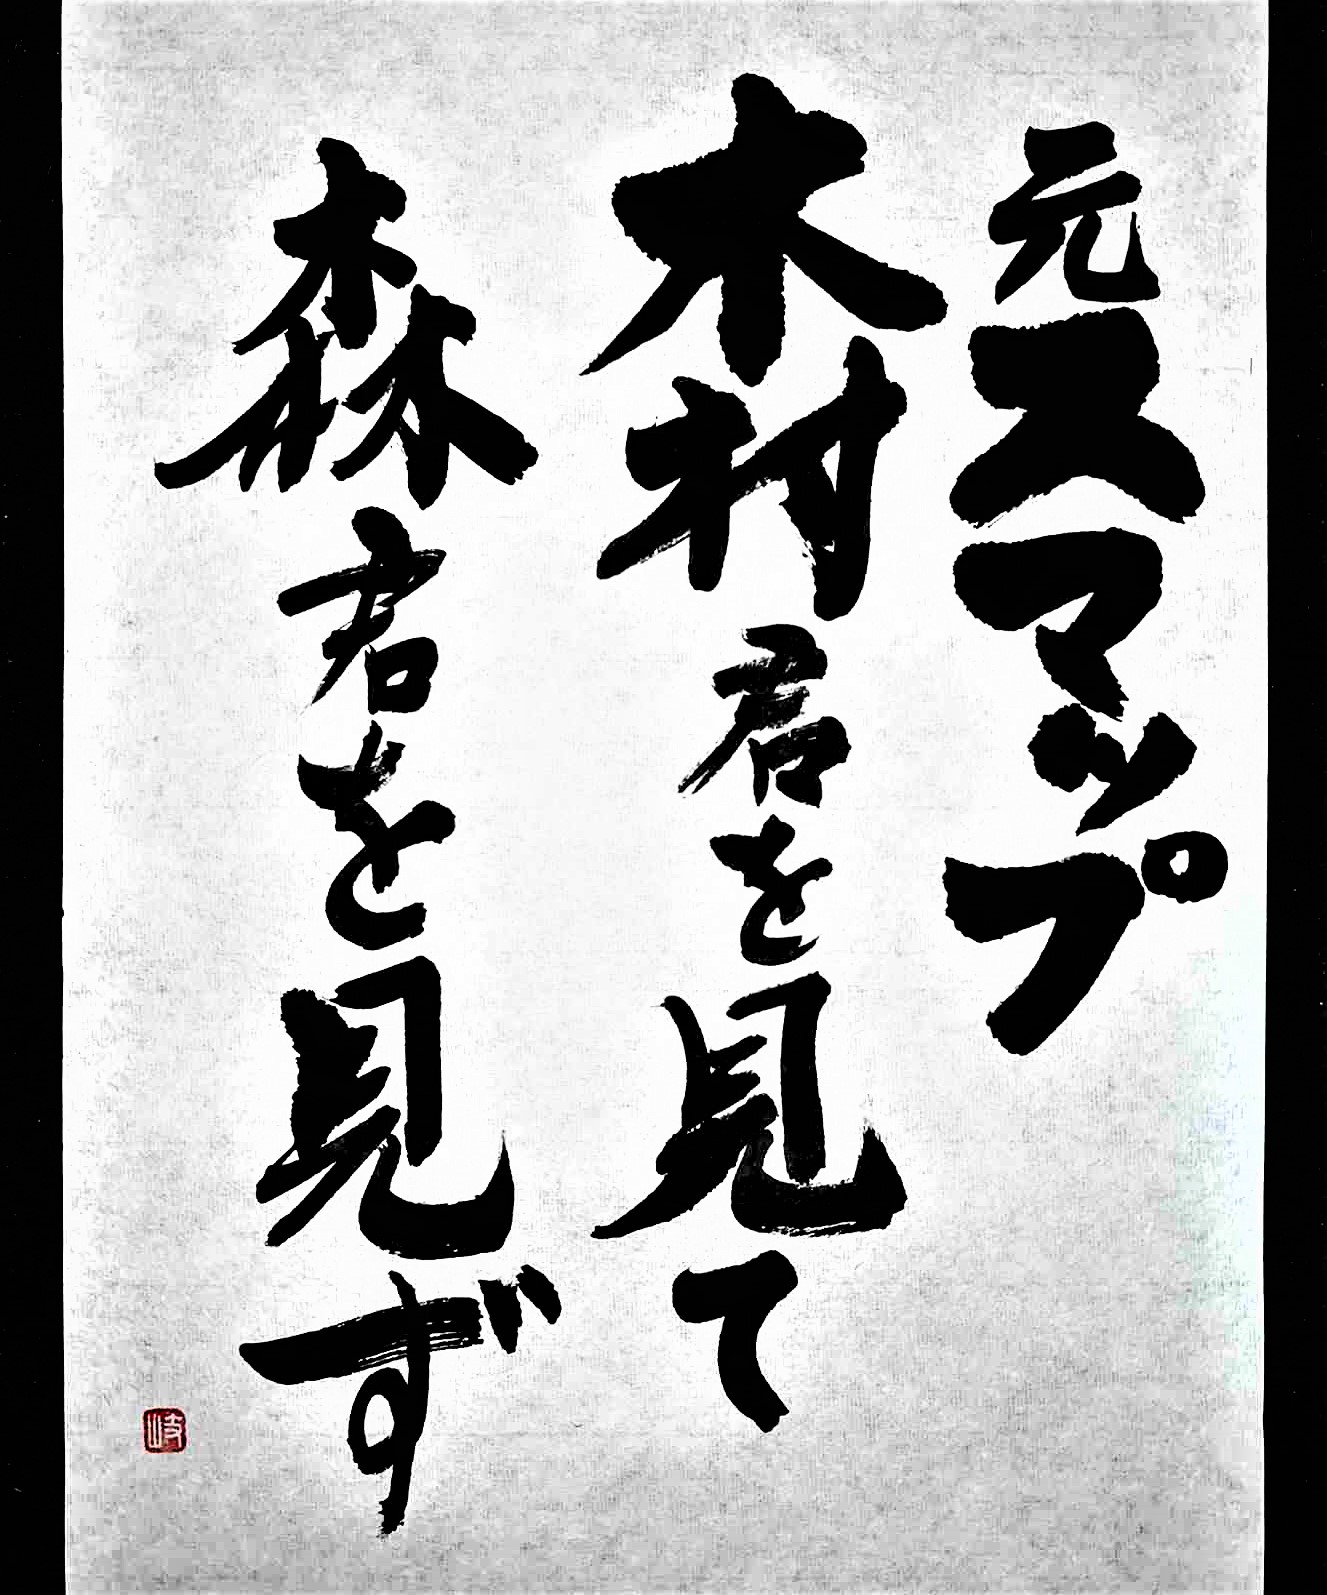 元スマップ
木村君を見て
森君を見ず
岐